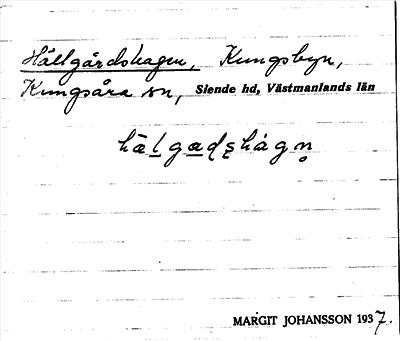 Hällgårdshagen, Kungsbyn,
Kungsåra sn, Siende hd, Västmanlands län
hälgaḍṣhágn̥
MARGIT JOHANSSON 1937.